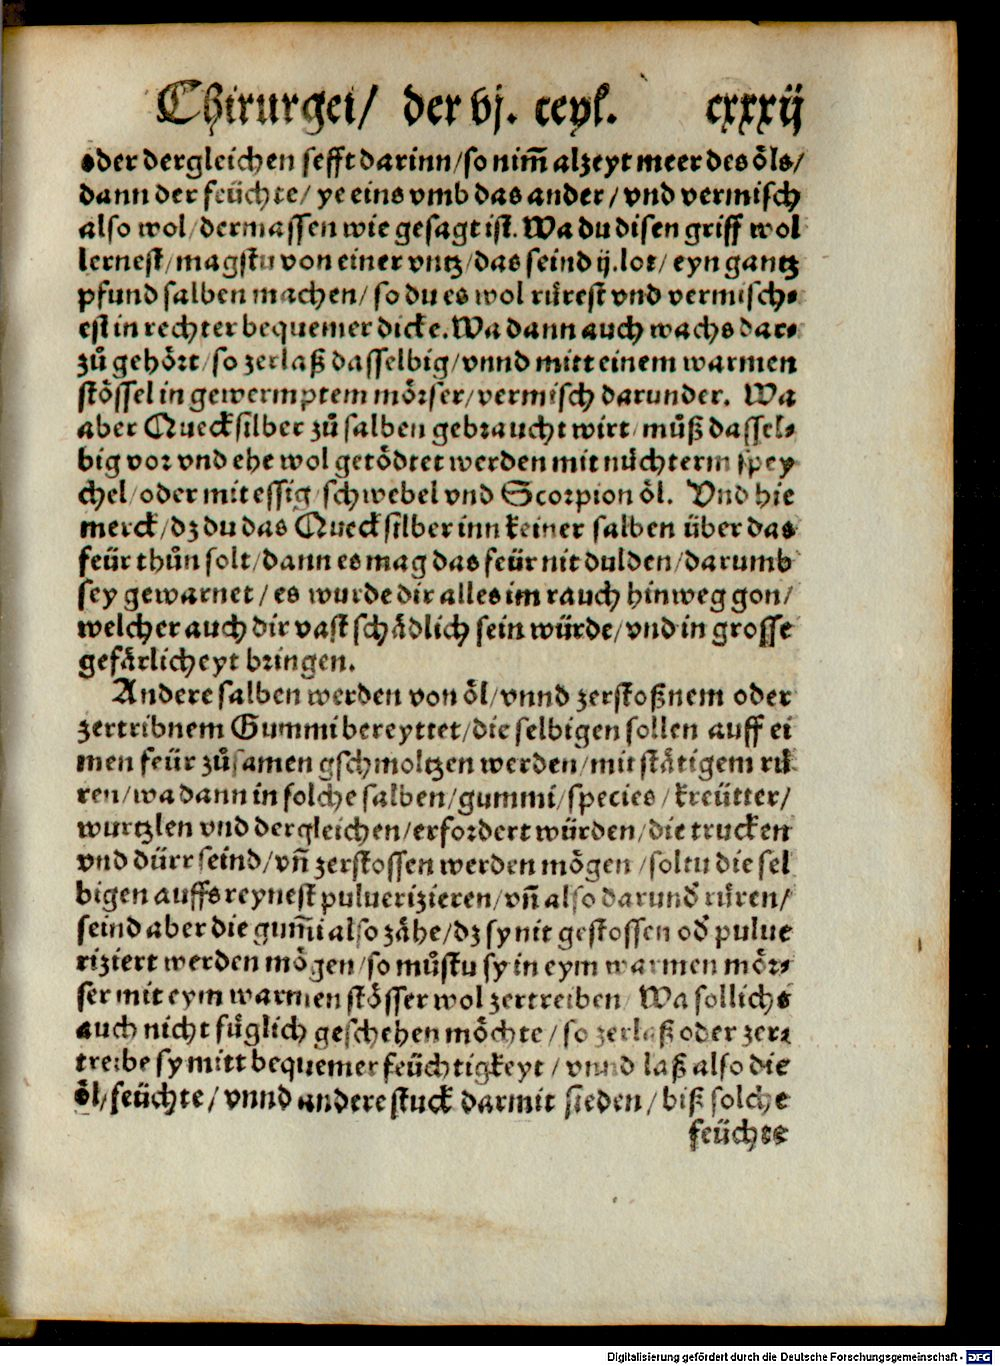 Chirurgei/ der vj. teyl. cxxxij
oder dergleichen sefft darinn/so nim̄ alzeyt meer des öls/
dann der feüchte/ ye eins vmb das ander/ vnd vermisch
also wol/dermassen wie gesagt ist. Wa du disen griff wol
lernest/magstu von einer vntz/das seind ij.lot/ eyn gantz
pfund salben machen/ so du es wol rürest vnd vermisch⸗
est in rechter bequemer dicke. Wa dann auch wachs dar⸗
zů gehört/so zerlaß dasselbig/vnnd mitt einem warmen
stössel in gewermptem mörser/vermisch darunder. Wa
aber Quecksilber zů salben gebraucht wirt/můß dassel⸗
big vor vnd ehe wol getödtet werden mit nüchterm spey
chel/oder mit essig/schwebel vnd Scorpion öl. Vnd hie
merck/dz du das Quecksilber inn keiner salben über das
feür thůn solt/dann es mag das feür nit dulden/darumb
sey gewarnet/es wurde dir alles im rauch hinweg gon/
welcher auch dir vast schädlich sein würde/vnd in grosse
gefärlicheyt bringen.
Andere salben werden von öl/vnnd zerstoßnem oder
zertribnem Gummi bereyttet/die selbigen sollen auff ei
men feür zůsamen gschmoltzen werden/mit stätigem rü
ren/wa dann in solche salben/gummi/species/kreütter/
wurtzlen vnd dergleichen/erfordert würden/die trucken
vnd dürr seind/vn̄ zerstossen werden mögen/soltu die sel
bigen auffs reynest puluerizieren/vn̄ also darund̕ rüren/
seind aber die gum̄i also zähe/dz sy nit gestossen od̕ pulue
riziert werden mögen/so můstu sy in eym warmen mör⸗
ser mit eym warmen stösser wol zertreiben/Wa sollichs
auch nicht füglich geschehen möchte/so zerlaß oder zer⸗
treibe sy mitt bequemer feüchtigkeyt/vnnd laß also die
öl/feüchte/vnnd andere stuck darmit sieden/biß solche
feüchte
Digitalisierung gefördert durch die Deutsche Forschungsgemeinschaft - DFG